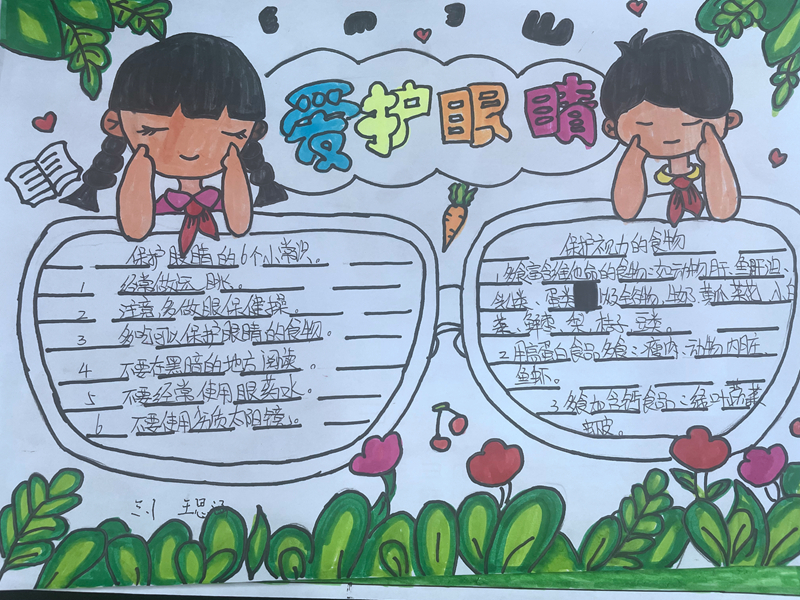 爱护眼睛
保护眼睛的6个小常识。
1 经常做远眺。
2 注意多做眼保健操。
3 多吃可以保护眼睛的食物。
4 不要在黑暗的地方阅读。
5 不要经常使用眼药水。
6 不要使用劣质太阳镜。
保护视力的食物
1.多食富含维他命的食物:如动物肝、鱼肝油、
鱼类、蛋类 奶
菜、鲜枣、梨、桔子、豆类。
2.用高蛋白食品多食:瘦肉、动物内脏、
鱼虾。
3.多食加含钙食品:绿叶蔬菜
虾皮。
三.1 王思